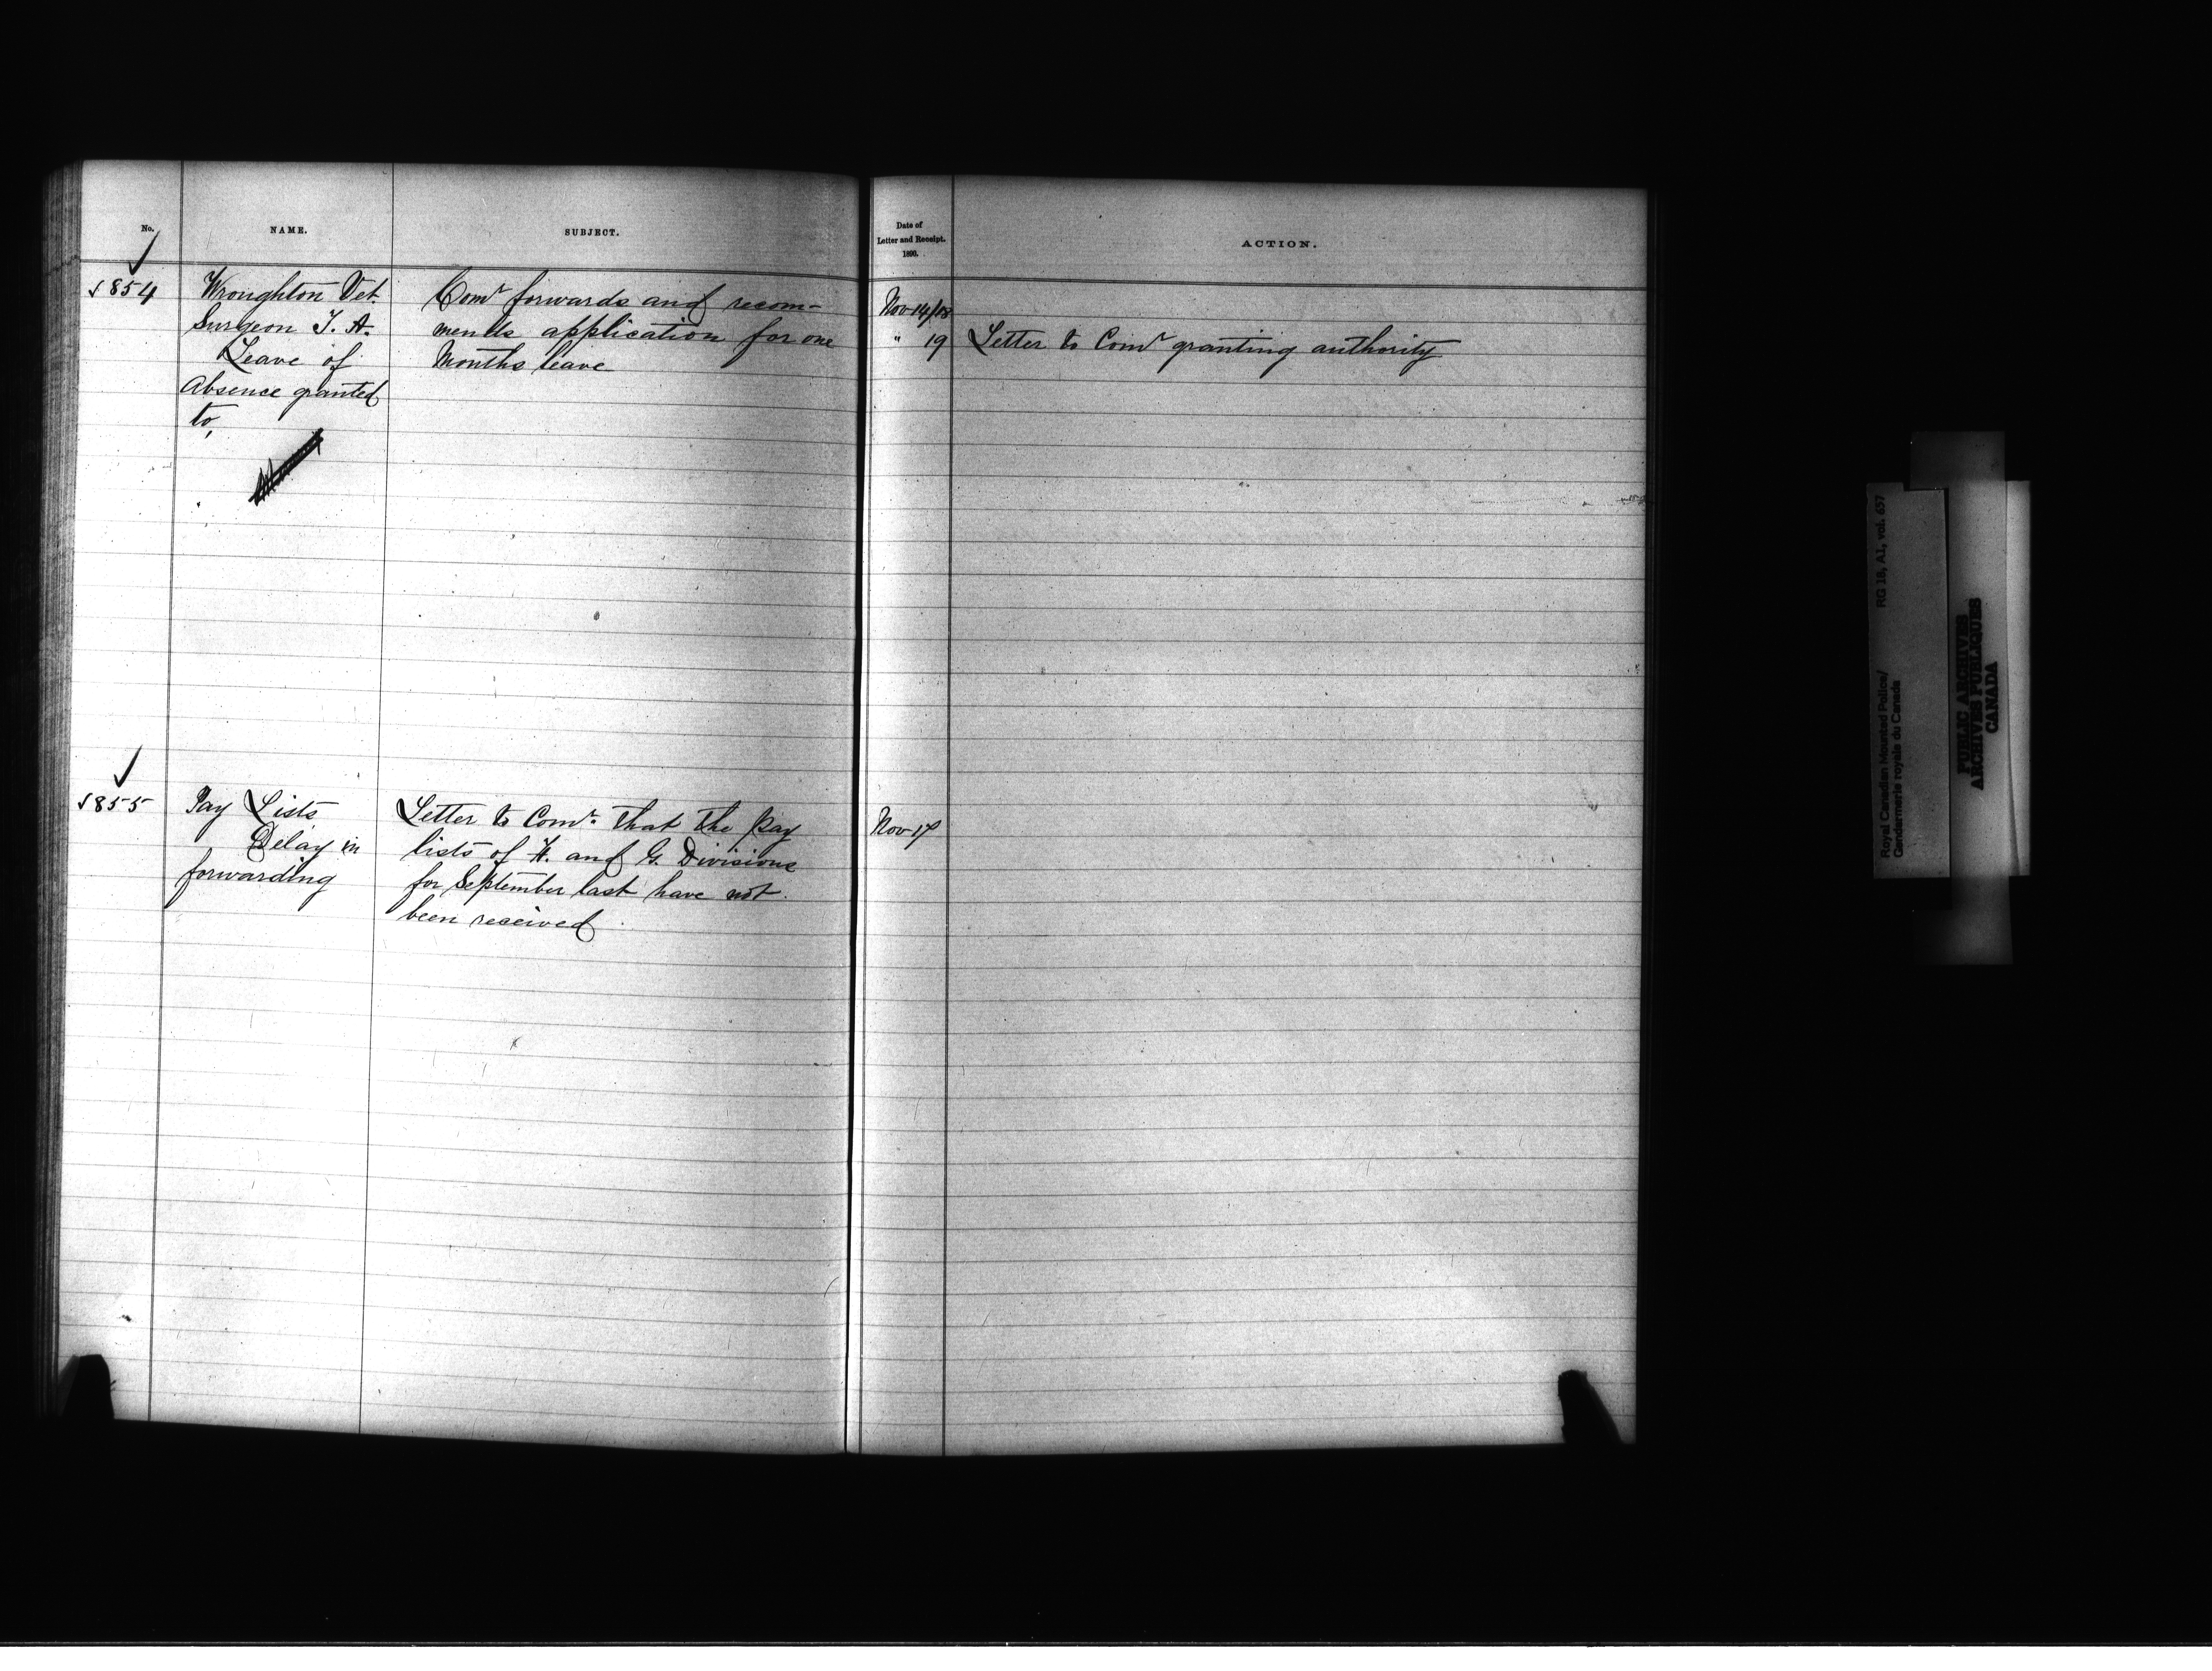 No.
NAME.
SUBJECT.
Date of
Letter and Receipt.
1890.
ACTION.
✓
✓854
Wroughton Vet.
Surgeon T. A.
Leave of
Absence granted
to,
Comr forwards and recom-
mends application for one
Months leave
Nov 14/18
" 19
Letter to Comr granting authority
✓
✓855
Pay Lists
Delay in
forwarding
Letter to Comr. that the pay
lists of and G. Divisions
for September last have not
been received
Nov 17
Royal Canadian Mounted Police/
Gendarmerie royale du Canada
RG 18, A1, vol. 657
PUBLIC ARCHIVES
ARCHIVES PUBLIQUES
CANADA